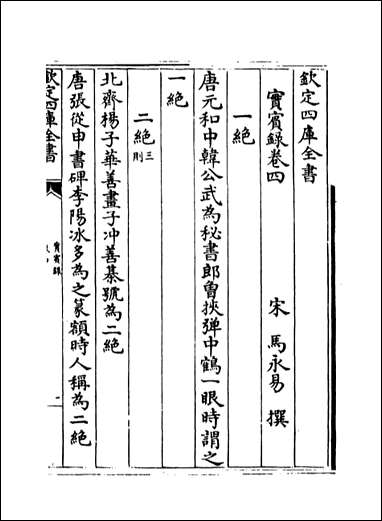 欽定四庫全書
實賓錄卷四
宋 馬永易 撰
一絕
唐元和中韓公武為秘書郎㑹挾弹中鶴一眼時謂之
一絕
二絕三則
北齊楊子華善畫子冲善棊號為二絕
唐張從申書碑李陽冰多為之篆額時人稱為二絕
欽定四庫全書
實賓錄